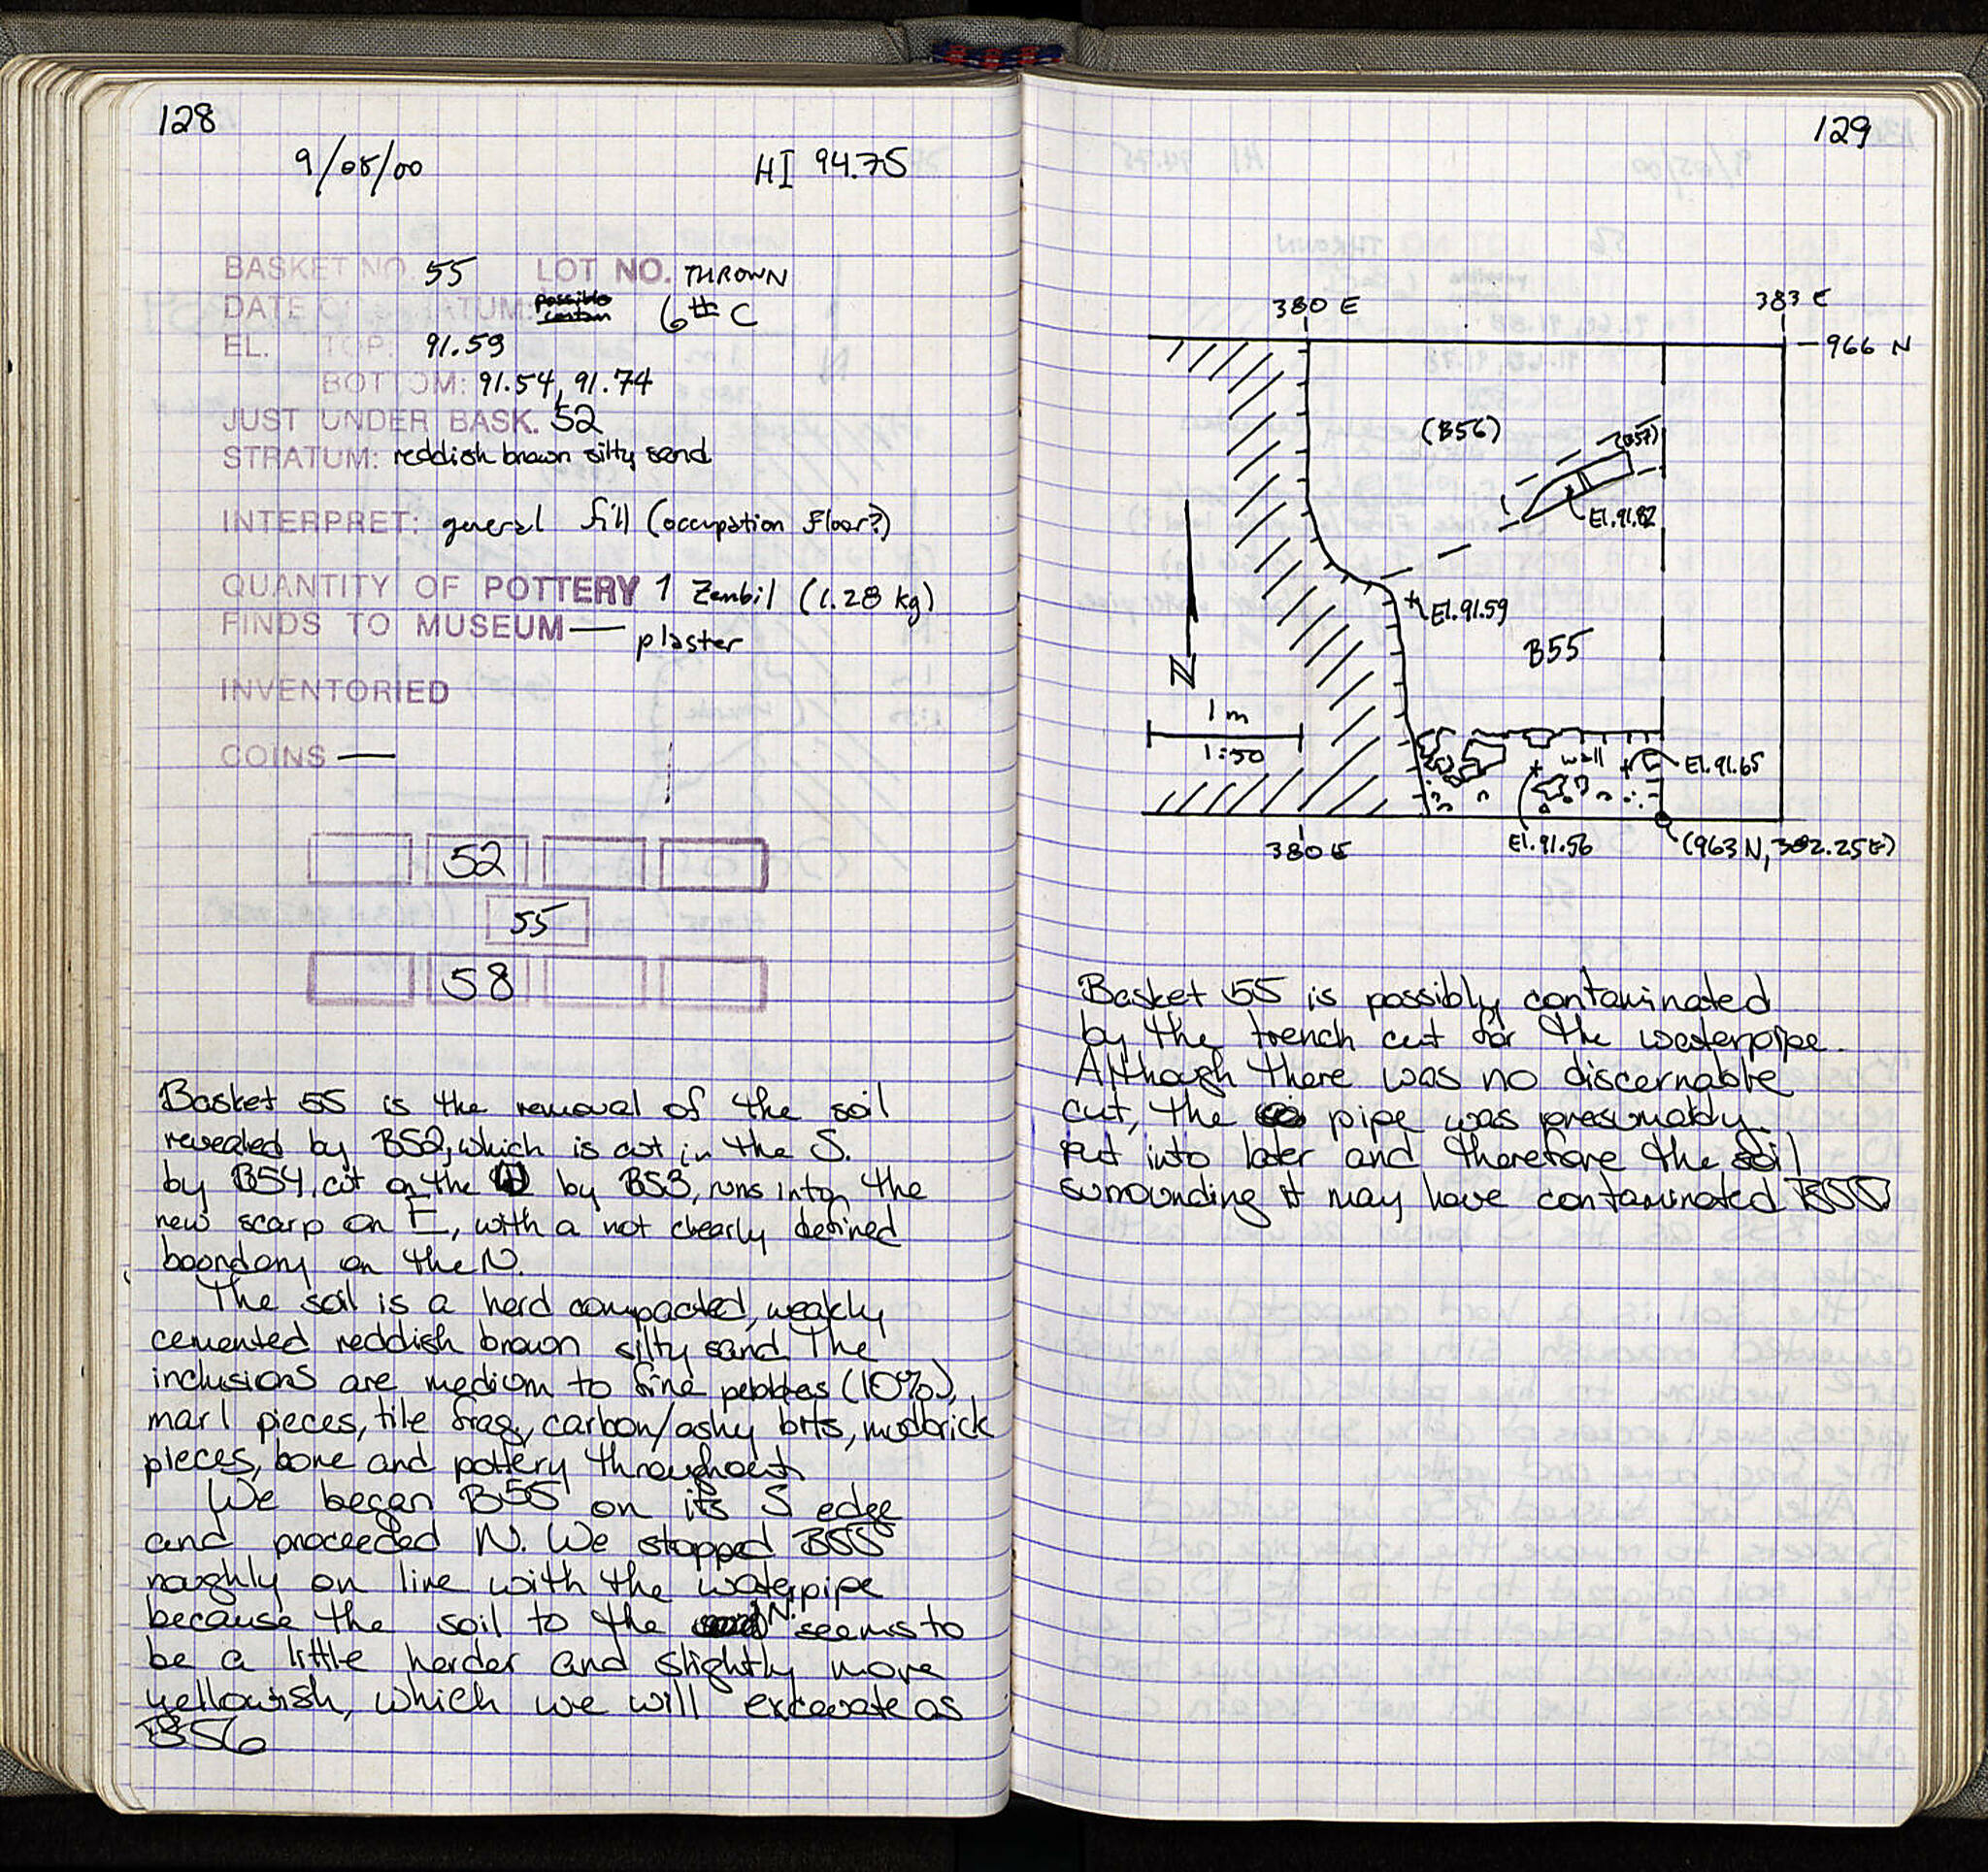 128
9/05/00 HI 94.75
BASKET NO. 55 LOT NO. THROWN
DATE OF STRATUM: possible contam 6th C
EL. TOP: 91.59
BOTTOM: 91.54, 91.74
JUST UNDER BASK. 52
STRATUM: reddish brown silty sand
INTERPRET: general fill (occupation floor?)
QUANTITY OF POTTERY 1 Zembil (1.28 kg)
FINDS TO MUSEUM — plaster
INVENTORIED
COINS —
52
55
58
Basket 55 is the removal of the soil
revealed by B52, which is cut in the S.
by B54, cut on the by B53, runs into the
new scarp on E, with a not clearly defined
boundary on the N.
The soil is a hard compacted, weakly
cemented reddish brown silty sand. The
inclusions are medium to fine pebbles (10%),
marl pieces, tile frags, carbon/ashy bits, mudbrick
pieces, bone and pottery throughout.
We began B55 on its S edge
and proceeded N. We stopped B55
roughly on line with the waterpipe
because the soil to the N. seems to
be a little harder and slightly more
yellowish, which we will excavate as
B56
129
380 E 383 E
966 N
(B56)
(B57)
El. 91.82
El. 91.59
B55
N
1 m
1:50
wall
El. 91.65
El. 91.56
380 E
(963 N, 382.25 E)
Basket 55 is possibly contaminated
by the trench cut for the waterpipe.
Although there was no discernable
cut, the pipe was presumably
put into later and therefore the soil
surrounding it may have contaminated B55